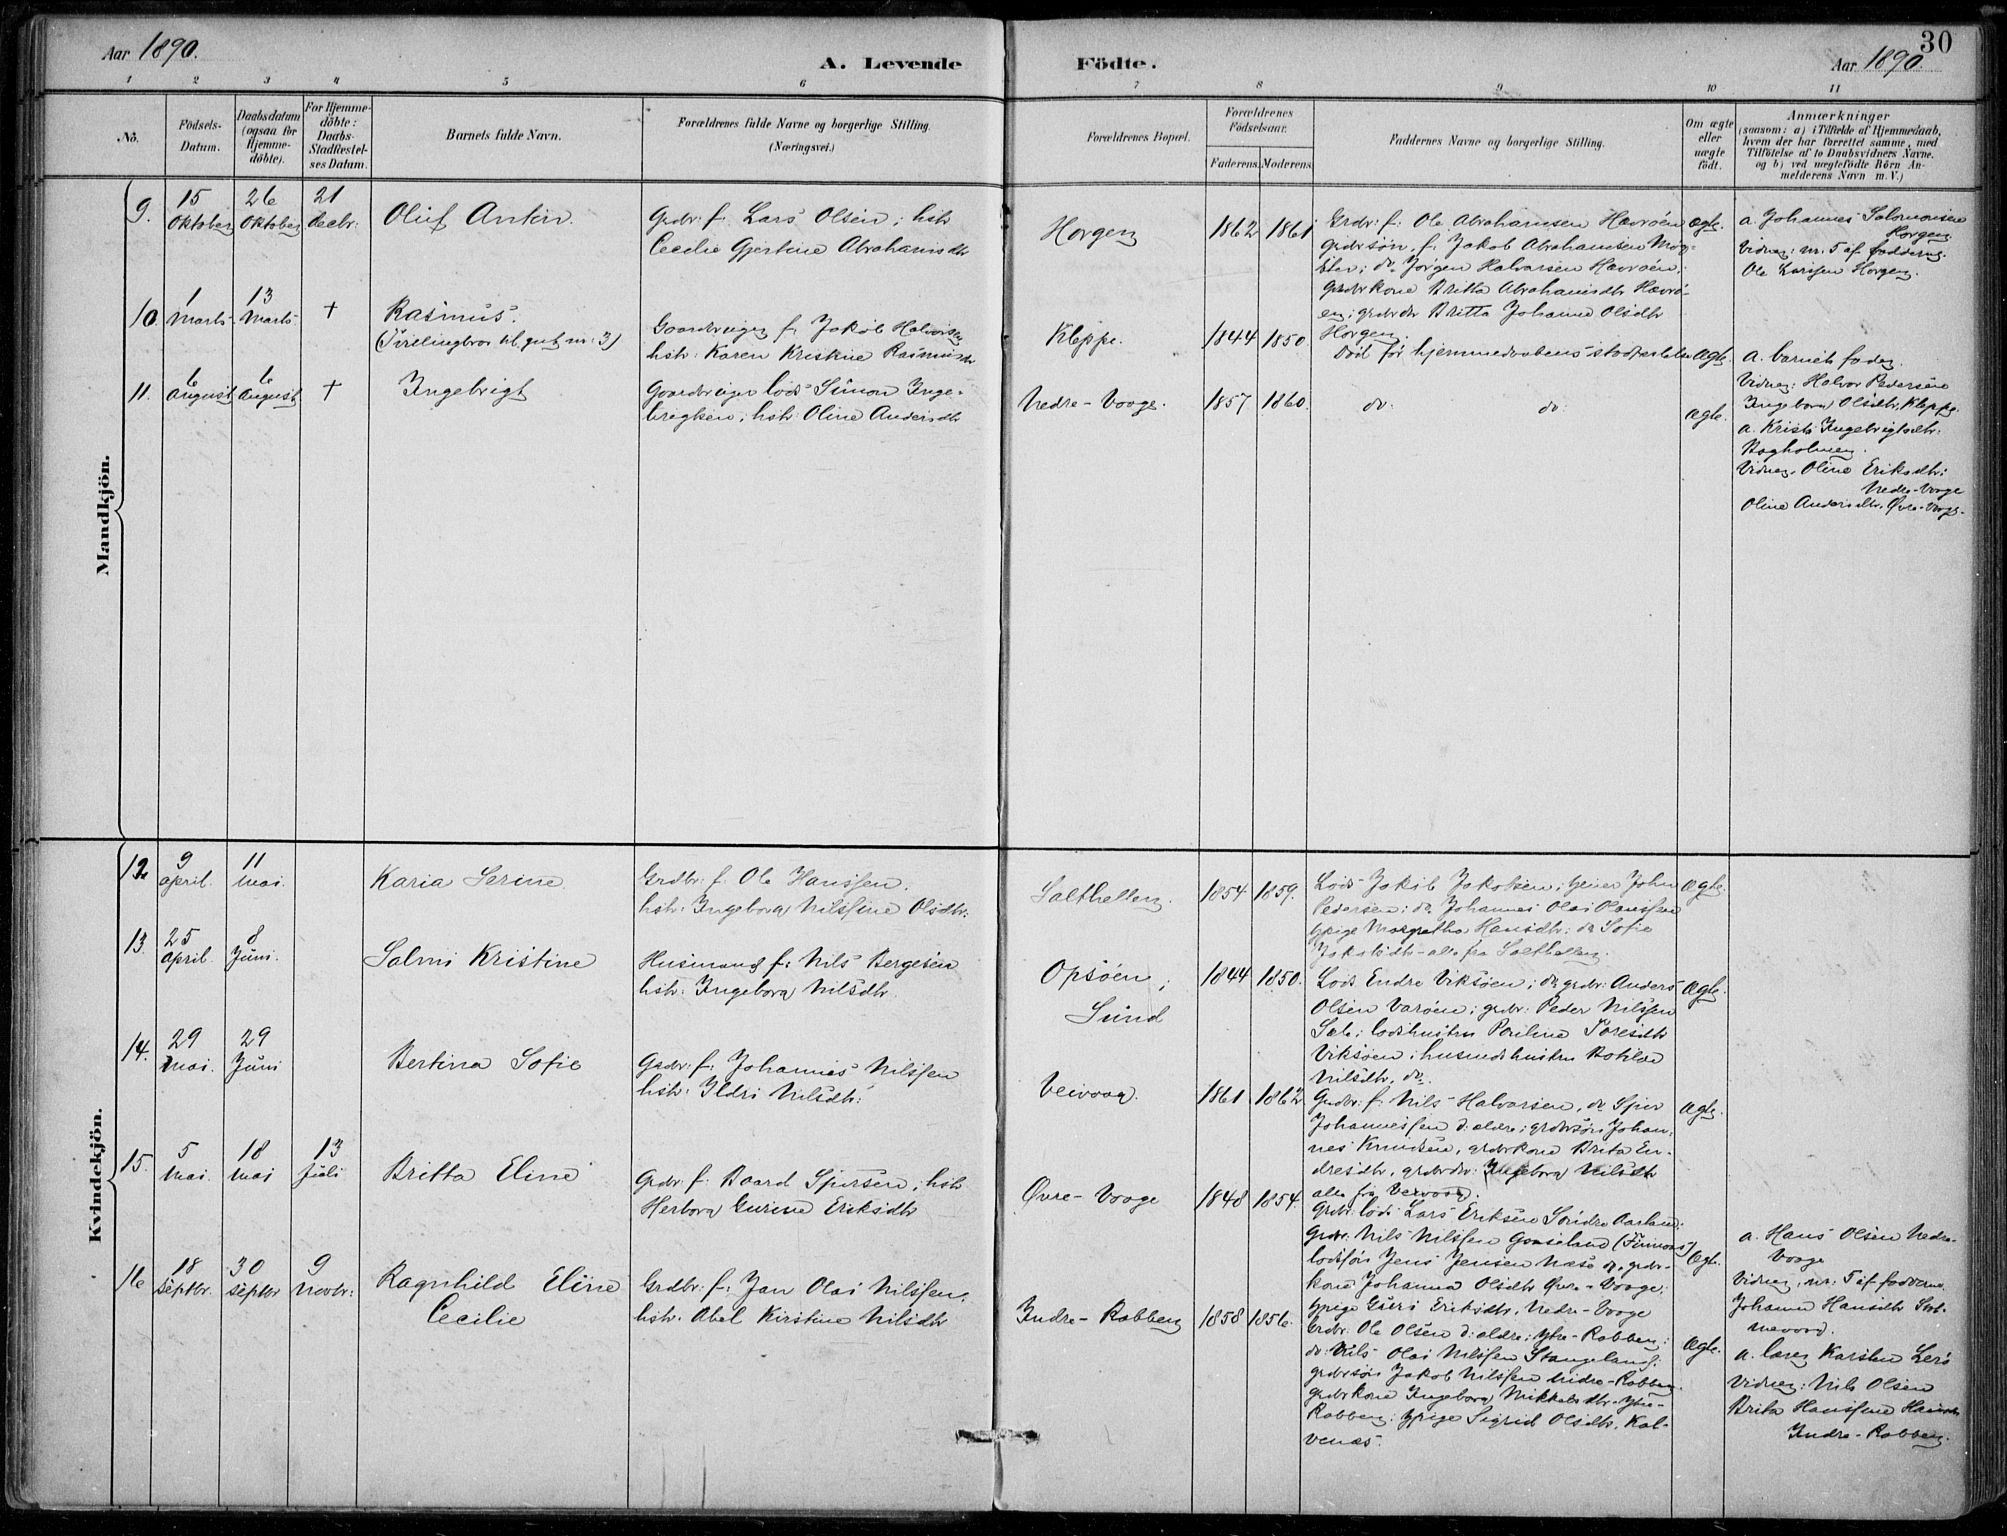 Aar 1890.
A. Levende Födte.
30
Aar 1890.
1 2 3 4 5 6 7 8 9 10 11
Nö.
Födsels-
Datum.
Daabsdatum
(ogsaa for
Hjemme-
döbte).
For Hjemme-
döbte:
Daabs-
Stadfæstel-
ses Datum.
Barnets fulde Navn.
Forældrenes fulde Navne og borgerlige Stilling
(Næringsvei.)
Forældrenes Bopæl.
Forældrenes
Födselsaar.
Faderens. Moderens.
Faddernes Navne og borgerlige Stilling.
Om ægte
eller
uægte
födt.
Anmærkninger
(saasom: a) i Tilfælde af Hjemmedaab,
hvem der har forrettet samme, med
Tilföielse af to Daabsvidners Navne,
og b) ved uægtefödte Börn An-
melderens Navn m. V.)
Mandkjön.
9.
15
Oktober
26
Oktober
21
decbr:
Oluf Antin.
Grdbr: f. Lars Olsen; hstr
Cecilie Gjertine Abrahamsdtr
Horgen
1862 1861
Grdbr: f. Ole Abrahamsen Hævröen
grdbrsön. f. Jakob Abrahamsen Mog-
do Jörgen Halvarsen Hævröen;
grdbrkone Britta Abrahamsdtr Hævrö-
en; grdbrdtr Britta Johanne Olsdtr
Horgen.
ægte.
a. Johannes Salomonsen
Horgen
Vidner: nr. 5 af fadderne.
Ole Larssen Horgen.
10.
1
Marts
13
Marts
+
Rasmus.
(Tvillingbror til gut nr: 3)
Gaardbruger f. Jakob Halvorsen
hstr: Karen Kristine Rasmusdtr
Kleppe.
1844 1850
Död før hjemmedaabens stadfæstelse
ægte.
a. barnets fader
Vidner: Halvor Pedersen
Ingeborg Olsdtr, Kleppe.
11.
6
August
6
August
+
Ingebrigt
Gaardbruger lods Simon Inge-
brigtsen; hstr: Oline Andersdtr
Nedre-Vaage.
1857 1860.
do. do.
ægte.
a. Kristi Ingebrigtsdtr.
Bogholmen.
Vidner. Oline Eriksdtr:
Nedre-Vaage
Oline Andersdtr. Øvre-Vaage.
Kvindekjön.
12
9
april.
11
mai.
Karia Serine.
Grdbr: f. Ole Hanssen.
hstr: Ingeborg Nilssine Olsdtr:
Salthellen.
1854 1859.
Lods Jakob Jakobsen; John
Pedersen; do Johannes Olai Olaussen
pige Margretha Hansdtr; do Sofie
Jakobsdtr alle fra Salthellen.
ægte
13.
25
april.
8
Juni.
Salmi Kristine
Husmand f: Nils Bergesen
hstr: Ingeborg Nilsdtr.
Opsöen;
Sund
1844 1850.
Lods Endre Viksöen; do grdbr: Anders
Olsen Varöen; grdbr: Peder Nilssen
lodshustru Pauline Toresdtr
Viksöen; husmdshustru Bothilde
Nilsdtr, do.
ægte.
14.
29
mai.
29
Juni
Bertina Sofie
Grdbr: f. Johannes Nilssen
hstr: Ildri Nilsdtr:
Veivaag.
1861 1862
Grdbr: f. Nils Halvarsen, do Sjur
Johannessen d: ældre; grdbrsön Johan-
nes Knudsen, grdbrkone Brita En-
dresdtr, grdbrdtr: Ingeborg Nilsdtr
alle fra Veivaag.
ægte.
15.
5
Mai.
18
Mai
13
Juli
Britta Eline
Grdbr: f. Baard Sjursen; hstr
Herborg Gurine Eriksdtr
Øvre-Vaage
1848 1854.
Grdbr: lods Lars Eriksen Söndre Aarland;
grdbr: Nils Nilssen Gaaseland
lodsfør Jens Jensen Næse og grdbr-
kone Johanna Olsdtr Øvre-Vaage;
pige Guri Eriksdtr, Nedre-Vaage
ægte.
a. Hans Olsen Nedre-
Vaage
Vidner. nr: 5 af fadderne.
Johanna Hansdtr
16
18
Septbr.
30
Septbr
9
Novbr:
Ragnhild Eline
Cecilie
Grdbr: f. Jan Olai Nilssen;
hstr. Abel Kirstine Nilsdtr
Indre-Rabben
1858 1856.
Grdbr: Ole Olsen d: ældre; Ytre-Rabben;
do: Nils Olai Nilssen Stangeland;
grdbrsön Jakob Nilssen Midre-Rabben
grdbrkone Ingeborg Mikkelsdtr-Ytre-
Rabben; pige Sigrid Olsdtr. Kal-
venæs.
ægte.
a. lærer Karsten Lerö
Vidner: Nils Olsen
Brita Hanssine
Indre-Rabben.